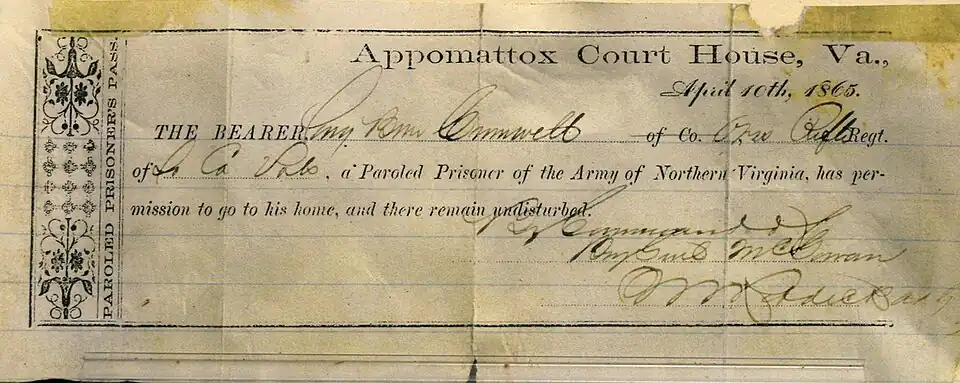 PAROLED PRISONER'S PASS.
Appomattox Court House, Va.,
April 10th, 1865.
THE BEARER, Cromwell of Co. Orrs Rifles Regt.
of So Ca Vols, a Paroled Prisoner of the Army of Northern Virginia, has per-
mission to go to his home, and there remain undisturbed.
By Command of
Brig Genl McGowan